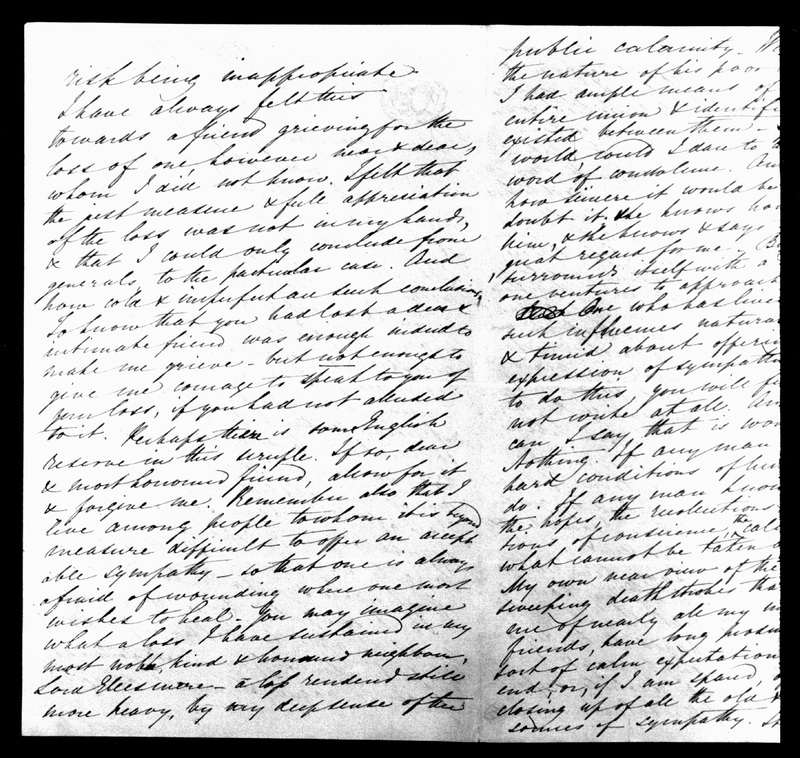 risk being inappropriate.
I have always felt this
towards a friend grieving for the
loss of one, however near & dear,
whom I did not know. I felt that
the just measure & full appreciation
of the loss was not in my hands,
& that I could only conclude from
generals to the particular case. And
how cold & imperfect are such conclusions,
To know that you had lost a dear &
intimate friend was enough indeed to
make me grieve - but not enough to
give me courage to speak to you of
your loss, if you had not alluded
to it. Perhaps there is some English
reserve in this scruple. If so, dear
& most honoured friend, allow for it
& forgive me. Remember also that I
live among people to whom it is beyond
measure difficult to offer an accept
able sympathy - so that one is always
afraid of wounding where one most
wishes to heal. You may imagine
what a loss I have sustained in my
most noble, kind & honoured neighbour,
Lord Ellesmere - a loss rendered still
more heavy, by my deep sense of the
public calamity.
the nature of his poor
I had ample means of
entire union & identifi
existed between them -
world, could I dare to
word of condolence.
how sincere it would be
doubt it. She knows
him, & she knows & says
great regard for me.
surrounds itself with a
one ventures to approach
One who has lived
such influences natural
& timid about offering
expression of sympathy
to do this, you will
not write at all.
can I say, that is
Nothing. If any man
hard conditions of
do. If any man know
the hopes, the recollections
tions of conscience, the
what cannot be taken
My own near view of the
sweeping death strokes that
me of nearly all my
friends, have long
sort of calm expectation
end, or, if I am spared,
closing up of all the old &
sources of sympathy.